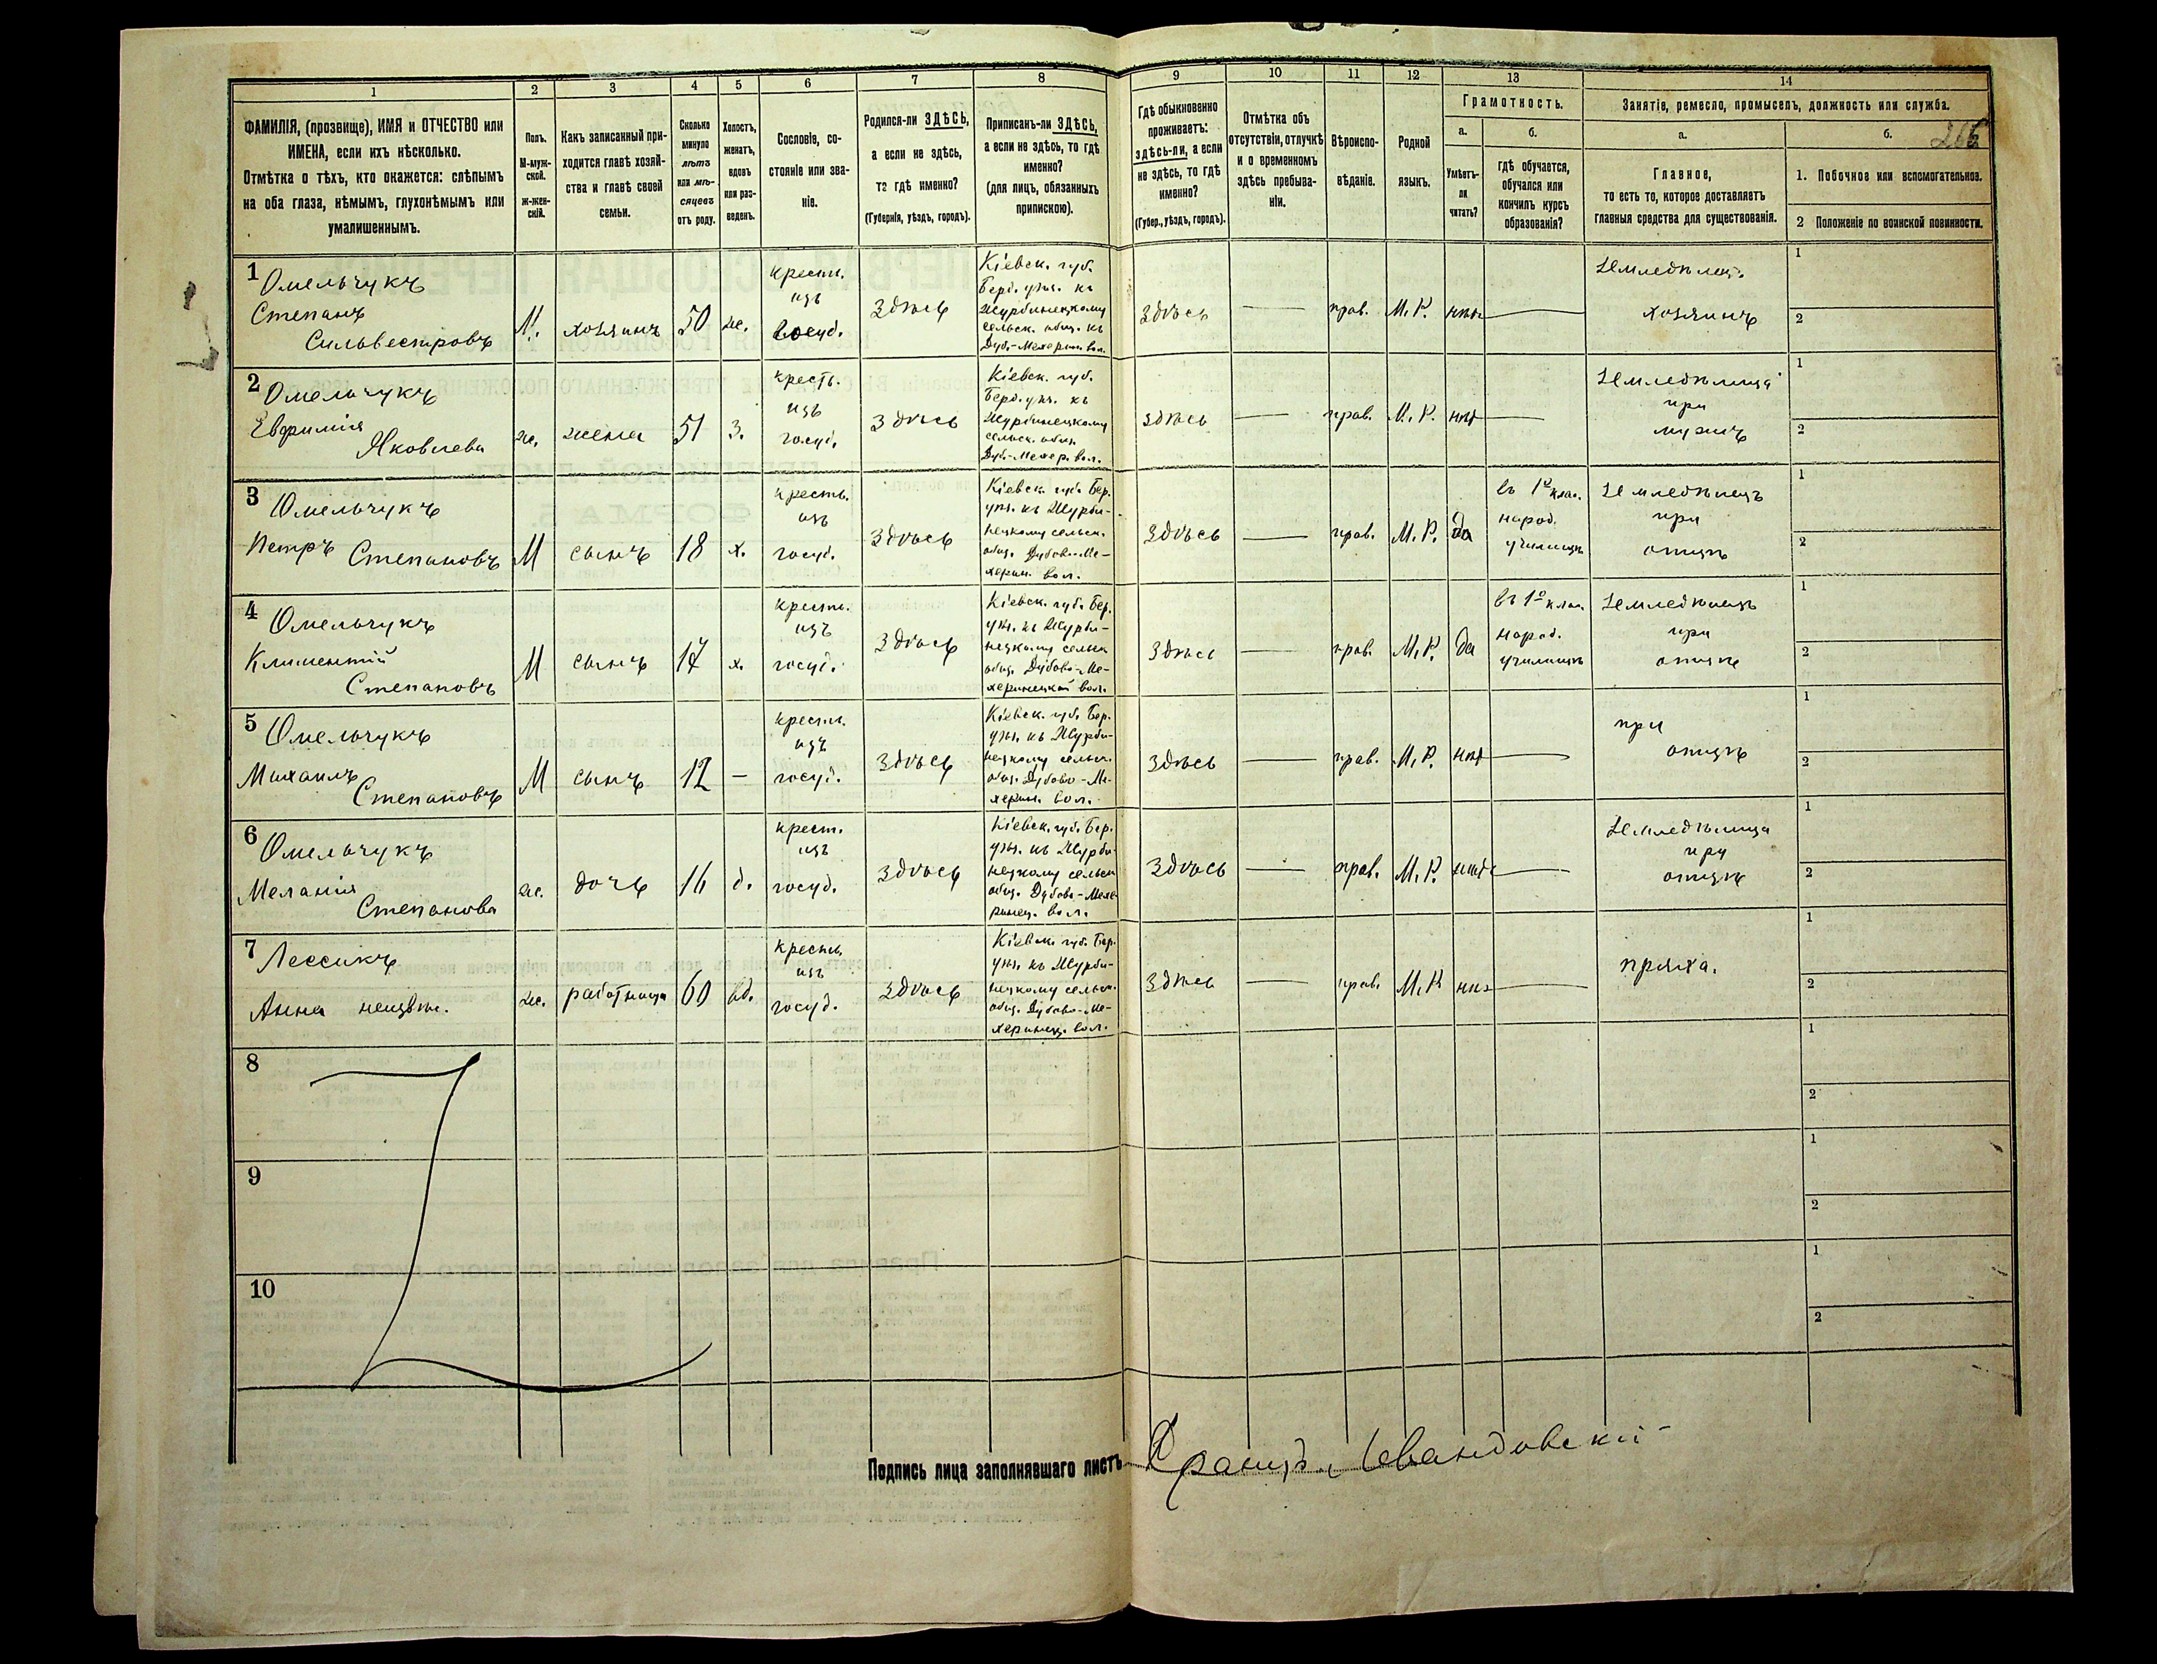 1 2 3 4 5 6 7 8 9 10 11 12 13 14
ФАМИЛІЯ, (прозвище), ИМЯ и ОТЧЕСТВО или
ИМЕНА, если ихъ нѣсколько.
Отмѣтка о тѣхъ, кто окажется: слѣпымъ
на оба глаза, нѣмымъ, глухонѣмымъ или
умалишеннымъ.
Полъ.
М-муж-
ской.
ж-жен-
скій.
Какъ записанный при-
ходится главѣ хозяй-
ства и главѣ своей
семьи.
Сколько
минуло
лѣтъ
или мѣ-
сяцевъ
отъ роду.
Холостъ,
женатъ,
вдовъ
или раз-
веденъ.
Сословіе, со-
стояніе или зва-
ніе.
Родился-ли ЗДѢСЬ,
а если не здѣсь,
то гдѣ именно?
(Губернія, уѣздъ, городъ).
Приписанъ-ли ЗДѢСЬ,
а если не здѣсь, то гдѣ
именно?
(для лицъ, обязанныхъ
припискою).
Гдѣ обыкновенно
проживаетъ:
здѣсь-ли, а если
не здѣсь, то гдѣ
именно?
(Губер., уѣздъ, городъ).
Отмѣтка объ
отсутствіи, отлучкѣ
и о временномъ
здѣсь пребыва-
ніи.
Вѣроиспо-
вѣданіе.
Родной
языкъ.
Грамотность.
а.
Умѣетъ-
ли
читать?
б.
гдѣ обучается,
обучался или
кончилъ курсъ
образованія?
Занятіе, ремесло, промыселъ, должность или служба.
а.
Главное,
то есть то, которое доставляетъ
главныя средства для существованія.
б.
1. Побочное или вспомогательное.
2 Положеніе по воинской повинности.
1 Омельчукъ
Степанъ
Сильвестровъ
М.
хозяинъ
50
же.
крестн.
изъ
госуд.
Здѣсь
Кіевск. губ.
Берд. уѣз. къ
Журбинецкому
сельск. общ. къ
Дуб.-Мехерин. вол.
Здѣсь
прав.
М. Р.
нѣтъ
земледѣлец.
хозяинъ
1
2
2 Омельчукъ
Евфимія
Яковлева
же.
жена
51
З.
крест.
изъ
госуд.
Здѣсь
Кіевск. губ.
Берд. уѣз. къ
Журбинецкому
сельск. общ.
Дуб.-Мехер. вол.
Здѣсь
прав.
М. Р.
нѣт
земледѣлица
при
мужѣ
1
2
3 Омельчукъ
Петръ Степановъ
М
сынъ
18
х.
крестн.
изъ
госуд.
Здѣсь
Кіевск. губ. Бер.
уѣз. къ Журби-
нецкому сельск.
общ. Дубово-Ме-
херин. вол.
Здѣсь
прав.
М. Р.
да
въ 1º клас.
народ.
училищѣ
земледѣлецъ
при
отцѣ
1
2
4 Омельчукъ
Климентій
Степановъ
М
сынъ
17
х.
крестн.
изъ
госуд.
Здѣсь
Кіевск. губ. Бер.
уѣз. къ Журби-
нецкому сельск
общ. Дубово-Ме-
херинецкой вол.
Здѣсь
прав.
М. Р.
да
въ 1º клас.
народ.
училищѣ
земледѣлецъ
при
отцѣ
1
2
5 Омельчукъ
Михаилъ
Степановъ
М
сынъ
12
–
крестн.
изъ
госуд.
Здѣсь
Кіевск. губ. Бер.
уѣз. къ Журби-
нецкому сельск.
общ. Дубово-Ме-
херин. вол.
Здѣсь
прав.
М. Р.
нѣт
при
отцѣ
1
2
6 Омельчукъ
Меланія
Степанова
же.
дочь
16
д.
крест.
изъ
госуд.
Здѣсь
Кіевск. губ. Бер.
уѣз. къ Журби-
нецкому сельск
общ. Дубово-Мехе-
ринец. вол.
Здѣсь
прав.
М. Р.
нѣтъ
земледѣлица
при
отцѣ
1
2
7 Лессикъ
Анна неизвѣс.
же.
работница
60
вд.
крестн.
изъ
госуд.
Здѣсь
Кіевск. губ. Бер.
уѣз. къ Журби-
нецкому сельск.
общ. Дубово-Ме-
херинец. вол.
Здѣсь
прав.
М. Р
нѣт
пряха.
1
2
8
1
2
9
1
2
10
1
2
Подпись лица заполнявшаго листъ Францъ Левандовскій